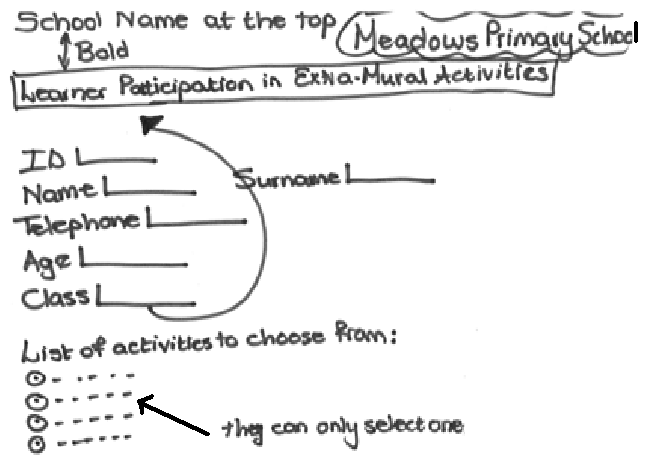 School Name at the top Meadows Primary School
Bold
Learner Participation in Extra-Mural Activities
ID
Name Surname
Telephone
Age
Class
List of activities to choose from:
they can only select one